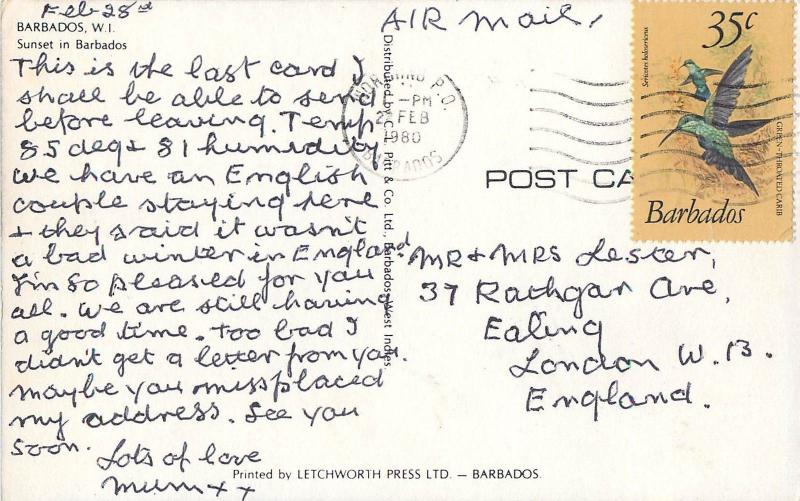 Feb 28th
BARBADOS, W.I.
Sunset in Barbados
This is the last card I
shall be able to send
before leaving. Temp
85 deg + 81 humidity
We have an English
couple staying here
+ they said it wasn't
a bad winter in England.
I'm so pleased for you
all. We are still having
a good time. Too bad I
didn't get a letter from you.
maybe you missplaced
my address. See you
soon.
Lots of love
Mum x x
Distributed by C.L. Pitt & Co. Ltd., Barbados, West Indies.
AIR Mail,
P.O.
-PM
FEB
1980
BARBADOS
POST CA
35c
Sericotes holosericeus
GREEN-THROATED CARIB
Barbados
MR + MRS Lester,
37 Rathgar Ave,
Ealing
London W. 13.
England.
Printed by LETCHWORTH PRESS LTD. — BARBADOS.